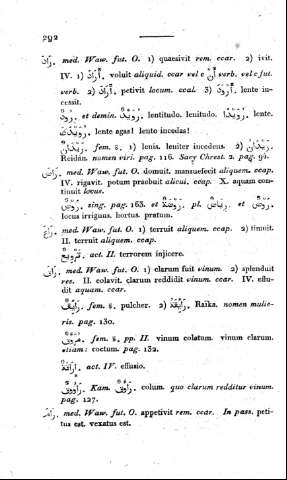 292
رَادَ. med. Waw. fut. O. 1) quaesivit rem. ccar. 2) ivit.
IV. 1) أَرَادَ. voluit aliquid. ccar vel c أَنْ verb. vel c fut.
verb. 2) أَرَادَ. petivit locum. ccal. 3) أَرْوَدَ. lente in-
cessit.
رُودٌ. et demin. رُوَيْدٌ. lentitudo. lenitudo. رُوَيْدًا. lente.
رُوَيْدَكَ. lente agas! lente incedas!
رَيْدَانٌ. fem. s. 1) lenis. leniter incedens. 2) رَيْدَانُ.
Reidán. nomen viri. pag. 116. Sacy Chrest. 2. pag.
رَاضَ. med. Waw. fut. O. domuit. mansuefecit aliquem. ccap.
IV. rigavit. potum praebuit alicui. ccap. X. aquam con-
tinuit locus.
رَوْضٌ. sing. pag. 163. et رَوْضَةٌ. pl. رِيَاضٌ. et رَوْضٌ.
locus irriguus. hortus. pratum.
رَاعَ. med. Waw. fut. O. 1) terruit aliquem. ccap. 2) timuit.
II. terruit aliquem. ccap.
تَرْوِيعٌ. act. II. terrorem injicere.
رَاقَ. med. Waw. fut. O. 1) clarum fuit vinum. 2) splenduit
res. II. colavit. clarum reddidit vinum. ccar. IV. effu-
dit aquam. ccar.
رَايِقٌ. fem. s. pulcher. 2) رَايِقَةُ. Raïka. nomen mulie-
ris. pag. 130.
مُرَوَّقٌ. fem. s. pp. II. vinum colatum. vinum clarum.
etiam: coctum. pag. 132.
إِرَاقَةٌ. act. IV. effusio.
رَاوُوقٌ. Kam. رَاوُوقٌ. colum. quo clarum redditur vinum.
pag. 127.
رَامَ. med. Waw. fut. O. appetivit rem. ccar. In pass. peti-
tus est. vexatus est.